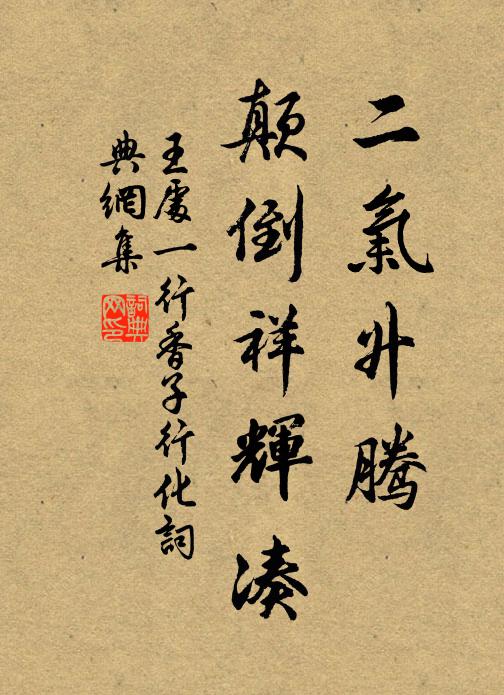 二氣升騰
顛倒祥輝湊
王處一行香子行化詞
典網集
詞典
网印